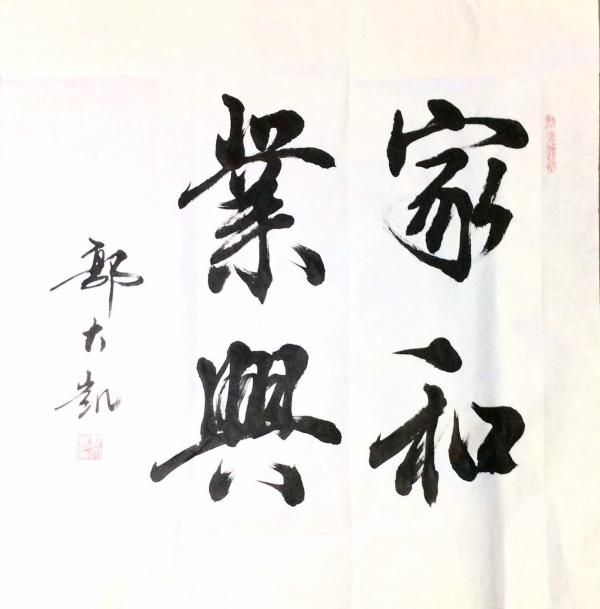 家和
業興
郭大凯